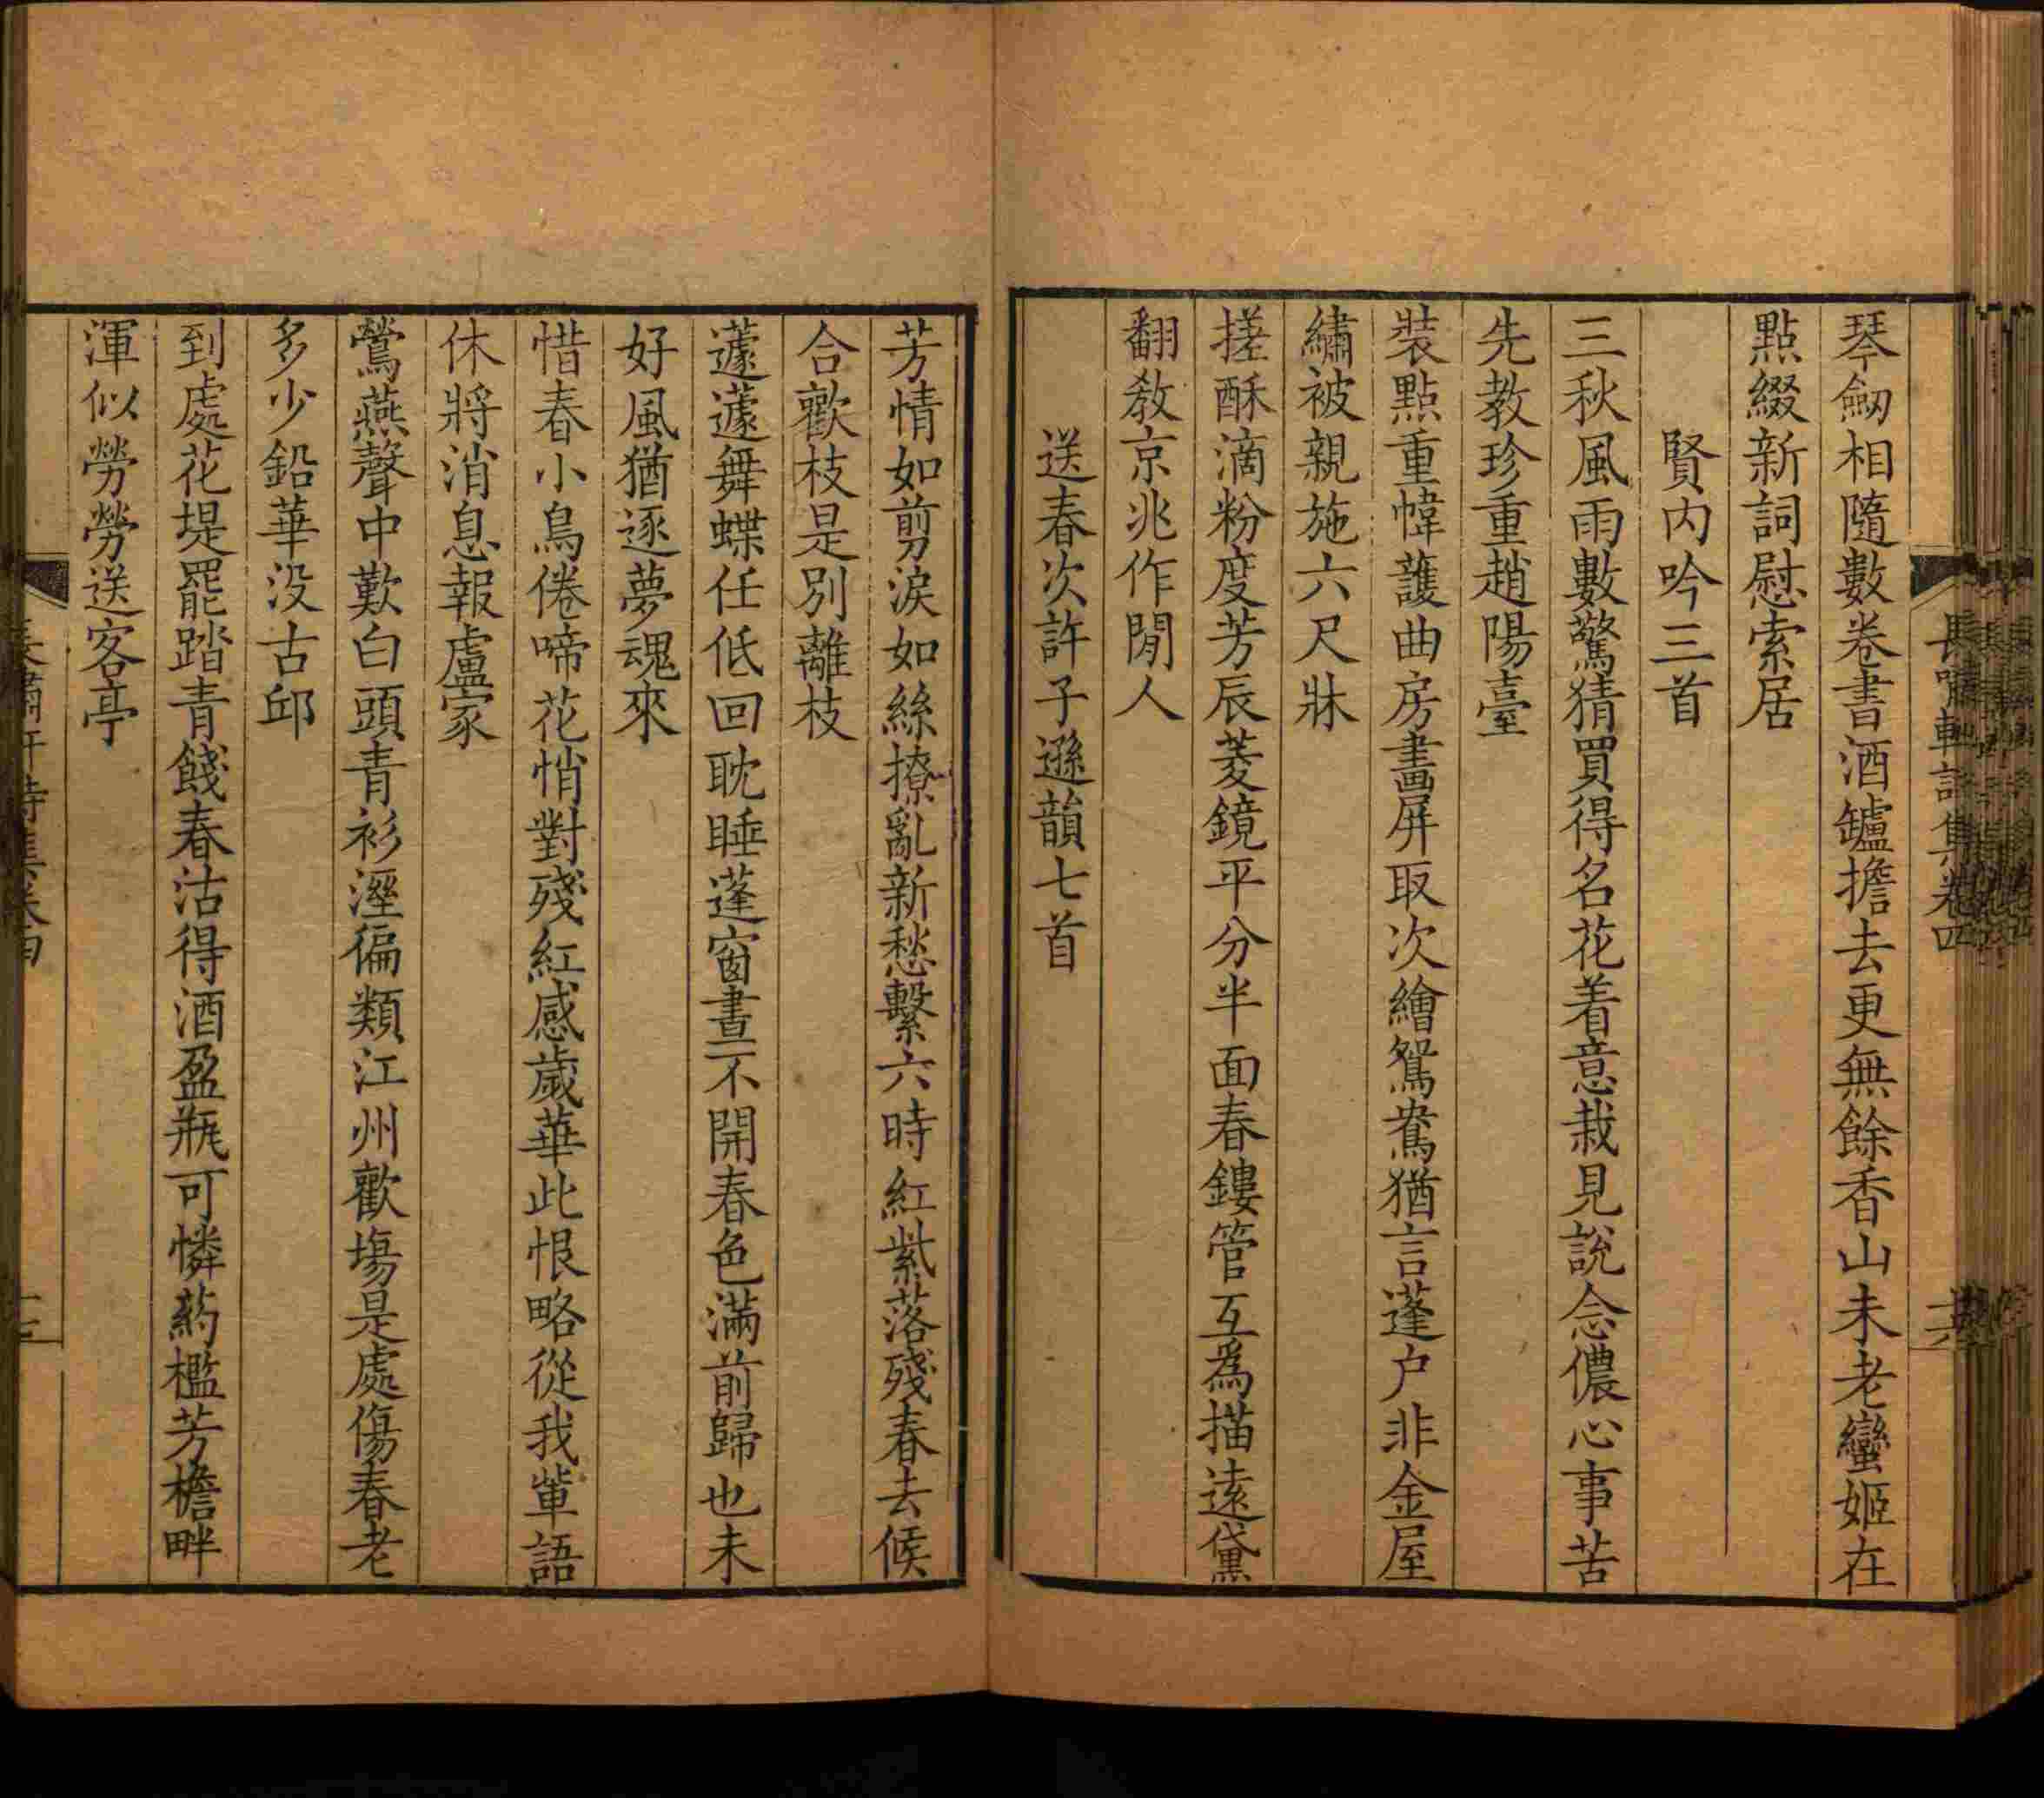 長嘯軒詩集卷四
琴劒相隨數卷書酒罏擔去更無餘香山未老蠻姬在
點綴新詞慰索居
賢内吟三首
三秋風雨數驚猜買得名花着意栽見說念儂心事苦
先教珍重趙陽臺
裝點重幃護曲房畵屏取次繪鴛鴦猶言蓬户非金屋
繡被親施六尺牀
搓酥滴粉度芳辰菱鏡平分半面春鏤管互爲描遠黛
翻教京兆作閒人
送春次許子遜韻七首
芳情如剪淚如絲撩亂新愁繫六時紅紫落殘春去候
合歡枝是別離枝
蘧蘧舞蝶任低回眈睡蓬窗晝不開春色滿前歸也未
好風猶逐夢魂來
惜春小鳥倦啼花悄對殘紅感歲華此恨略從我輩語
休將消息報盧家
鶯燕聲中歎白頭青衫溼徧類江州歡塲是處傷春老
多少鉛華没古邱
到處花堤罷踏青餞春沽得酒盈瓶可憐葯檻芳檐畔
渾似勞勞送客亭